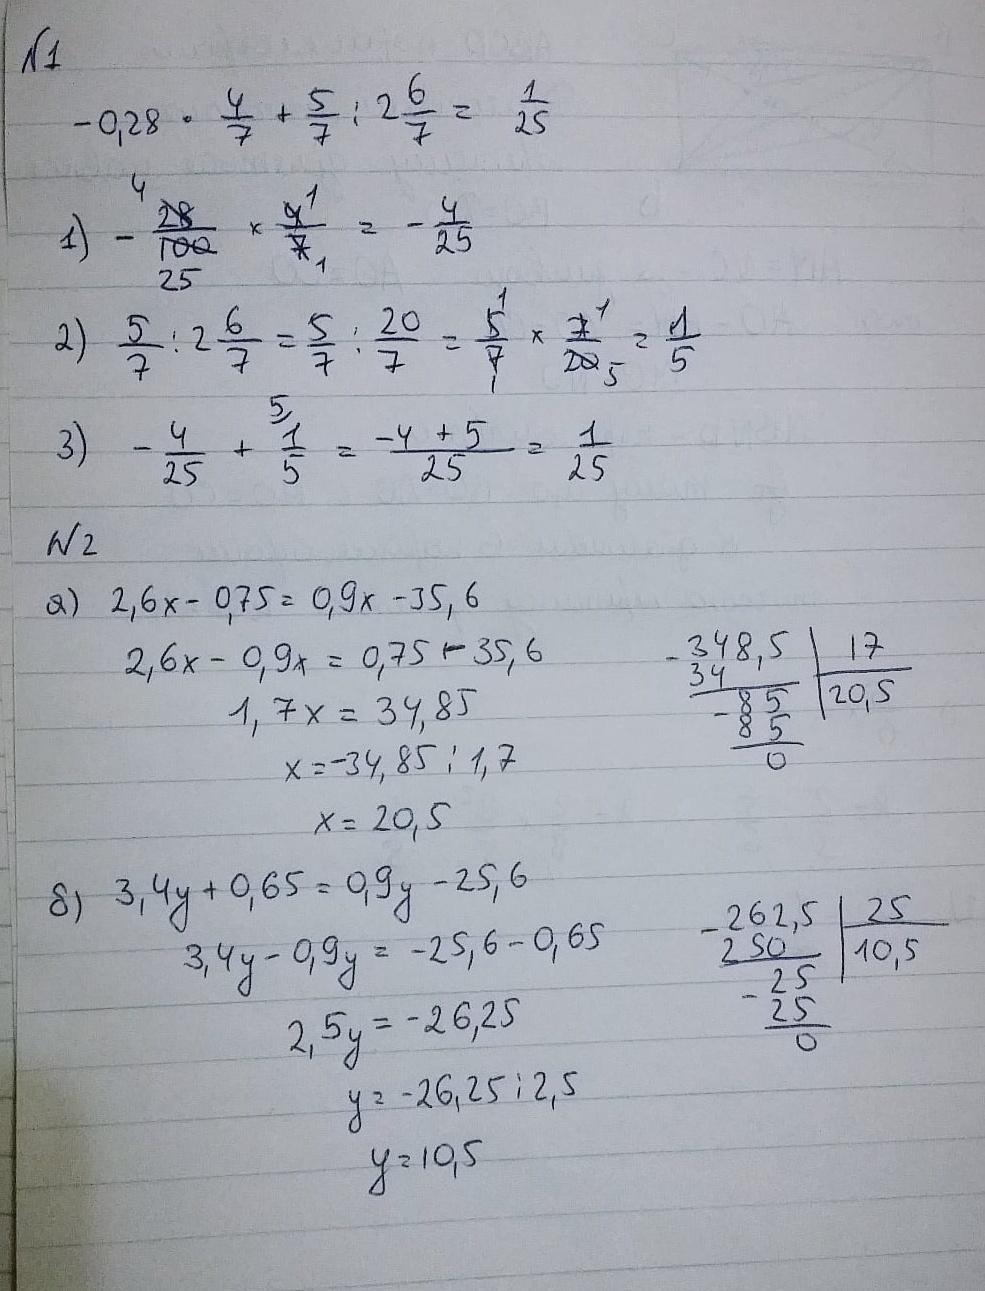 N1
-0,28 · 4/7 + 5/7 : 2 6/7 = 1/25
1) - 28/100 × 4/7 = - 4/25
4 25 1 1
2) 5/7 : 2 6/7 = 5/7 : 20/7 = 5/7 × 7/20 = 1/5
1 1 1 5
3) - 4/25 + 1/5 = -4 + 5/25 = 1/25
5
N2
а) 2,6x - 0,75 = 0,9x - 35,6
2,6x - 0,9x = 0,75 - 35,6
1,7x = 34,85
x = -34,85 : 1,7
x = 20,5
-348,5 | 17
34 | 20,5
-85
85
0
б) 3,4y + 0,65 = 0,9y - 25,6
3,4y - 0,9y = -25,6 - 0,65
2,5y = -26,25
y = -26,25 : 2,5
y = 10,5
-262,5 | 25
250 | 10,5
-25
25
0